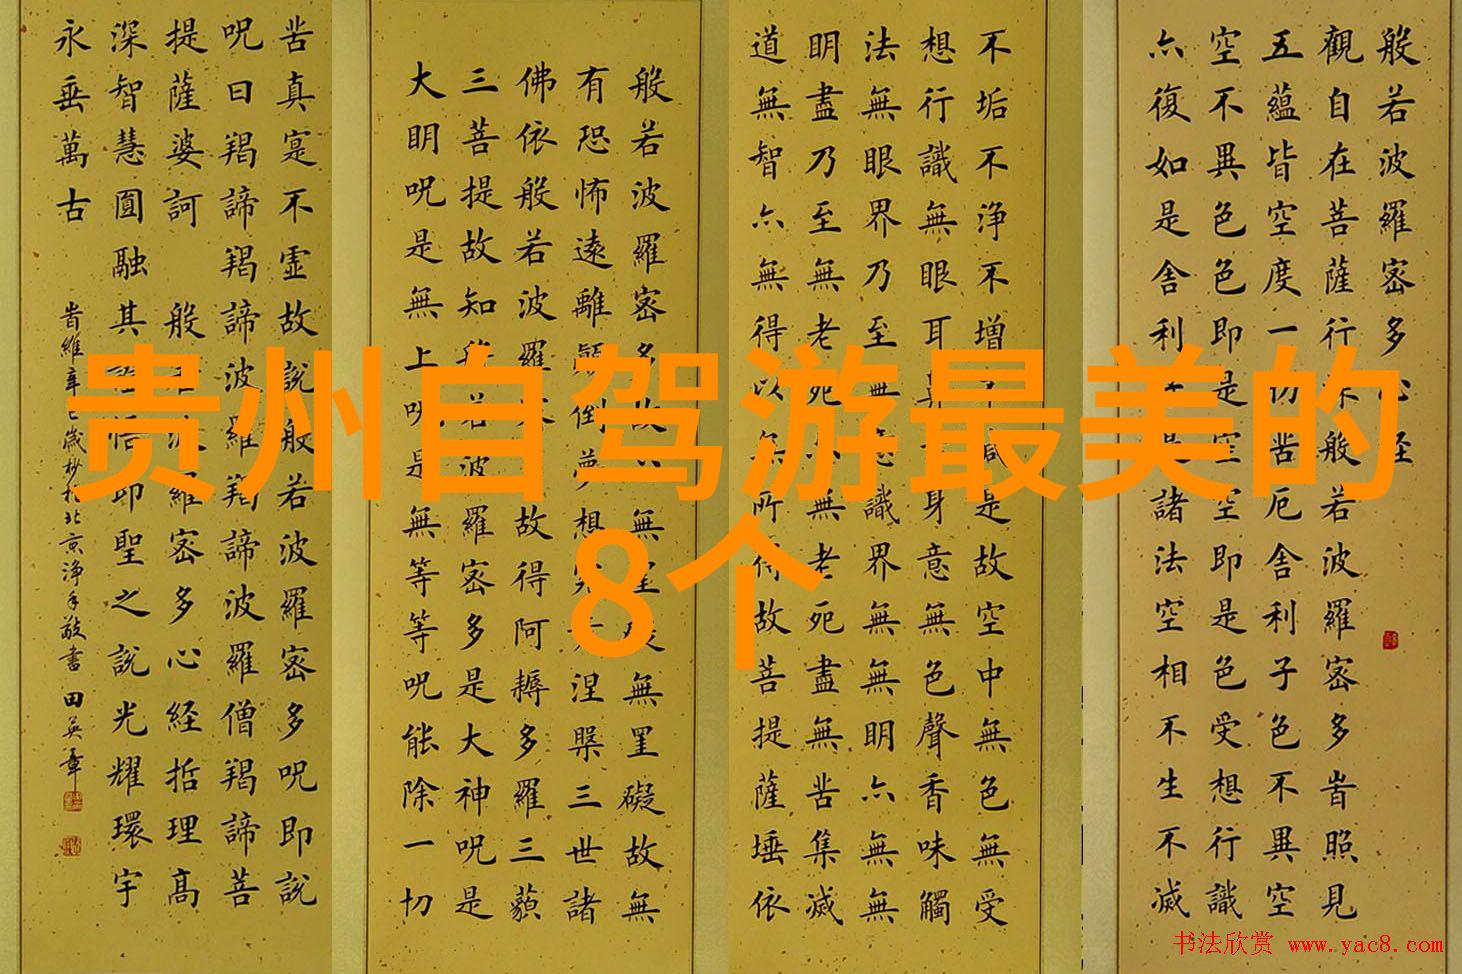 贵州自驾游最美的
8个
般若波羅密多心経
觀自在菩薩行深般若波羅密多旹照見
五蘊皆空度一切苦厄舍利子色不異空
空不異色色即是空空即是色受想行識
亦復如是舍利子是諸法空相不生不滅
不垢不淨不增不減是故空中無色無受
想行識無眼耳鼻舌身意無色聲香味觸
法無眼界乃至無意識界無無明亦無無
明盡乃至無老死亦無老死盡無苦集滅
道無智亦無得以無所得故菩提薩埵依
般若波羅密多故心無罣礙無罣礙故無
有恐怖遠離顛倒夢想究竟涅槃三世諸
佛依般若波羅密多故得阿耨多羅三藐
三菩提故知般若波羅密多是大神呪是
大明呪是無上呪是無等等呪能除一切
苦真寔不虛故說般若波羅密多呪即說
呪曰羯諦羯諦波羅羯諦波羅僧羯諦菩
提薩婆訶 般若波羅密多心経括理高
深智慧圓融其悟即聖之說光耀環宇
永垂萬古
旹維辛巳歲杪於北京淨手敬書 田英章
书法欣赏 www.yac8.com